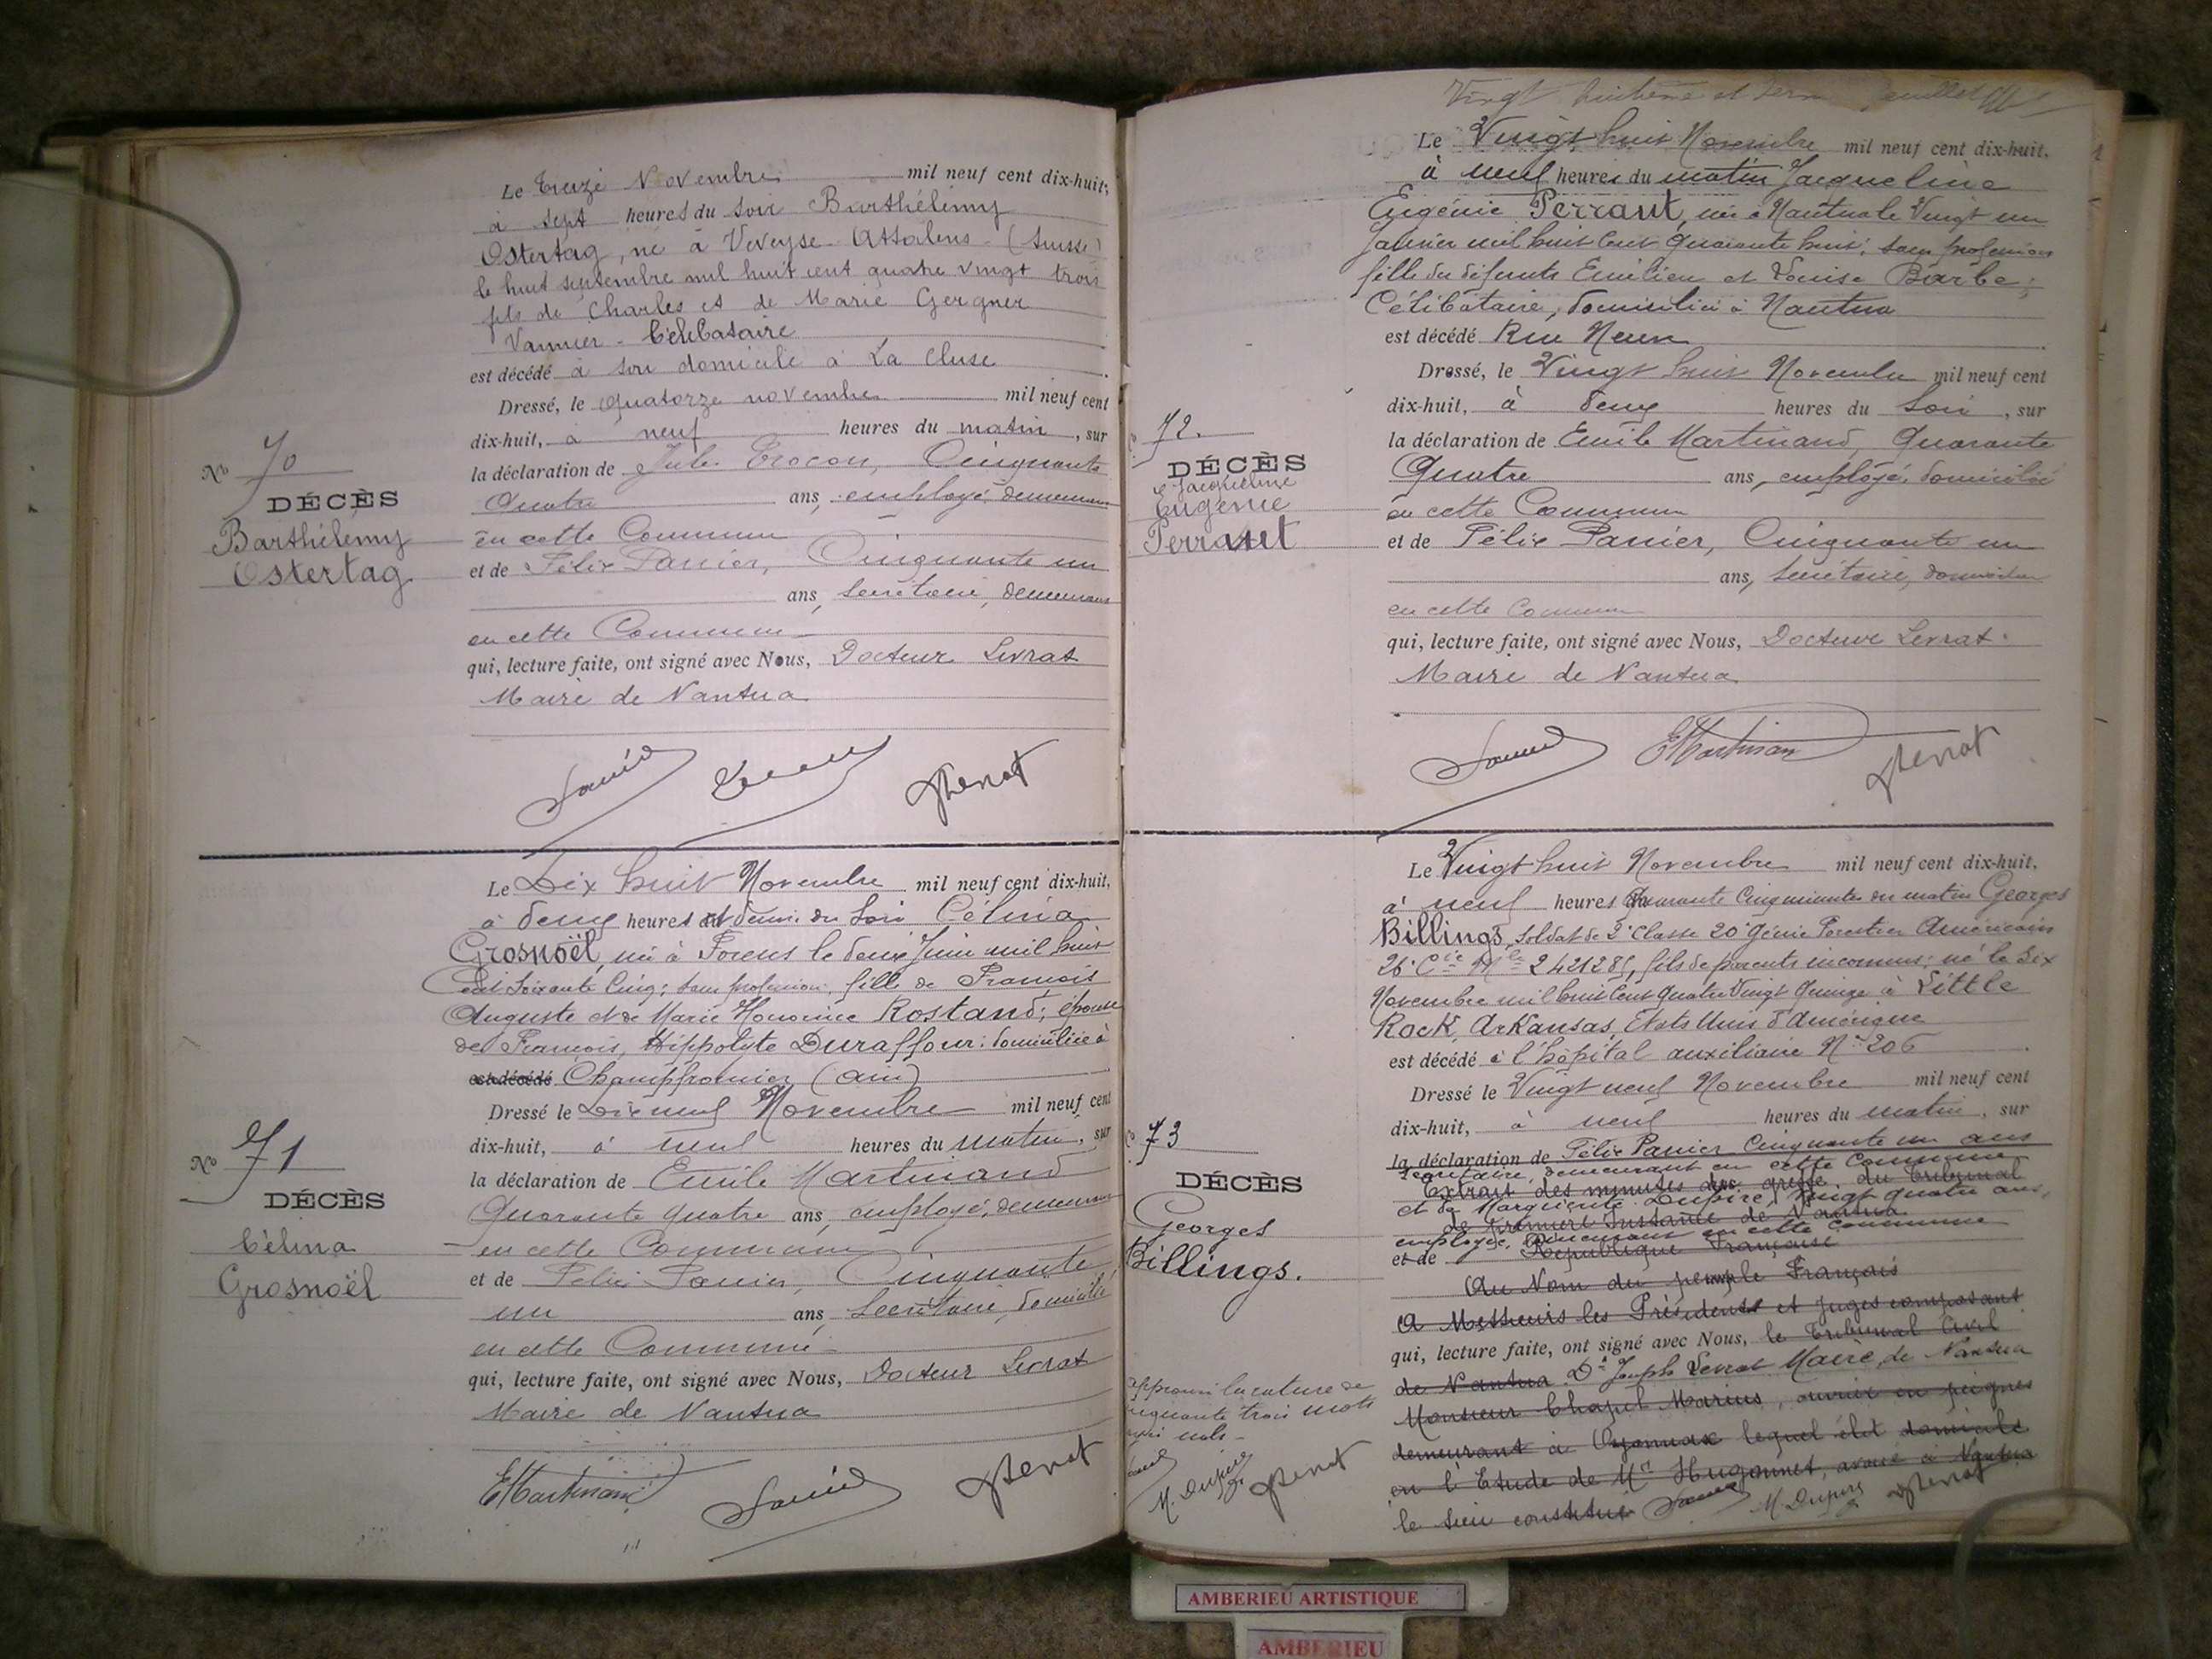 Le treize Novembre mil neuf cent dix-huit,
à sept heures du soir Barthélémy
Ostertag, né à Veveyse-Attalens (Suisse)
le huit septembre mil huit cent quatre vingt trois
fils de Charles et de Marie Gergner
Vannier - Célibataire
est décédé à son domicile à La Cluse
Dressé, le quatorze novembre mil neuf cent
dix-huit, à neuf heures du matin, sur
la déclaration de Jules Trocon, Cinquante
Quatre ans, employé, demeurant
en cette Commune
et de Félix Panier, Cinquante un
ans, secrétaire, demeurant
en cette Commune
qui, lecture faite, ont signé avec Nous, Docteur Levrat
Maire de Nantua
No 70
DÉCÈS
Barthélémy
Ostertag
Le Dix huit Novembre mil neuf cent dix-huit,
à deux heures et demie du soir Célina
Grosnoël, née à Forens le deux Juin mil huit
Cent Soixante Cinq; sans profession, fille de François
Auguste et de Marie Honorine Rostand; épouse
de François, Hippolyte Duraffour: domiciliée à
est décédé Champfromier (ain)
Dressé le Dix neuf Novembre mil neuf cent
dix-huit, à neuf heures du matin, sur
la déclaration de Emile Martinand
Quarante quatre ans, employé, demeurant
en cette Commune
et de Félix Panier, Cinquante
un ans, Secrétaire, domicilié
en cette Commune
qui, lecture faite, ont signé avec Nous, Docteur Levrat
Maire de Nantua
EMartinand
No 71
DÉCÈS
Célina
Grosnoël
Vingt huitième et dern feuillet
Le Vingt huit Novembre mil neuf cent dix-huit,
à neuf heures du matin Jacqueline
Eugénie Perraut, née à Nantua le Vingt un
Janvier mil huit Cent Quarante huit; sans profession
fille des défunts Emilien et Louise Barbe;
Célibataire, domiciliée à Nantua
est décédé Rue Neuve
Dressé, le Vingt huit Novembre mil neuf cent
dix-huit, à deux heures du Soir, sur
la déclaration de Emile Martinand, Quarante
Quatre ans, employé, domicilié
en cette Commune
et de Félix Panier, Cinquante un
ans, secrétaire, domicilié
en cette Commune
qui, lecture faite, ont signé avec Nous, Docteur Levrat
Maire de Nantua
EMartinand
72
DÉCÈS
Jacqueline
Eugénie
Perraut
Le Vingt huit Novembre mil neuf cent dix-huit,
à neuf heures Quarante Cinq minutes du matin Georges
Billings, Soldat de 2e Classe 20e Génie Forestier Américain
26e Cie Mle 2421285, fils de parents inconnus; né le Six
Novembre mil huit Cent Quatre Vingt Quinze à Little
Rock, Arkansas, Etats Unis d'Amérique
est décédé à l'hôpital auxiliaire No 206
Dressé le Vingt neuf Novembre mil neuf cent
dix-huit, à neuf heures du matin, sur
la déclaration de Félix Panier Cinquante un ans
secrétaire, demeurant en cette Commune
Extrait des minutes du greffe du Tribunal
et de Marguerite Dupire, Vingt quatre ans,
de Première Instance de Nantua
employée, demeurant en cette Commune
et de République Française
Au Nom du peuple Français
A Messieurs les Présidents et Juges composant
qui, lecture faite, ont signé avec Nous, le Tribunal Civil
de Nantua Dr Joseph Levrat Maire de Nantua
Monsieur Chapel Marius, ouvrier en peignes
demeurant à Oyonnax lequel élit domicile
en l'Etude de Me Hugonnet, avoué à Nantua
le sien constitué
73
DÉCÈS
Georges
Billings.
approuvé la rature de
cinquante trois mots
nuls
AMBERIEU ARTISTIQUE
AMBERIEU